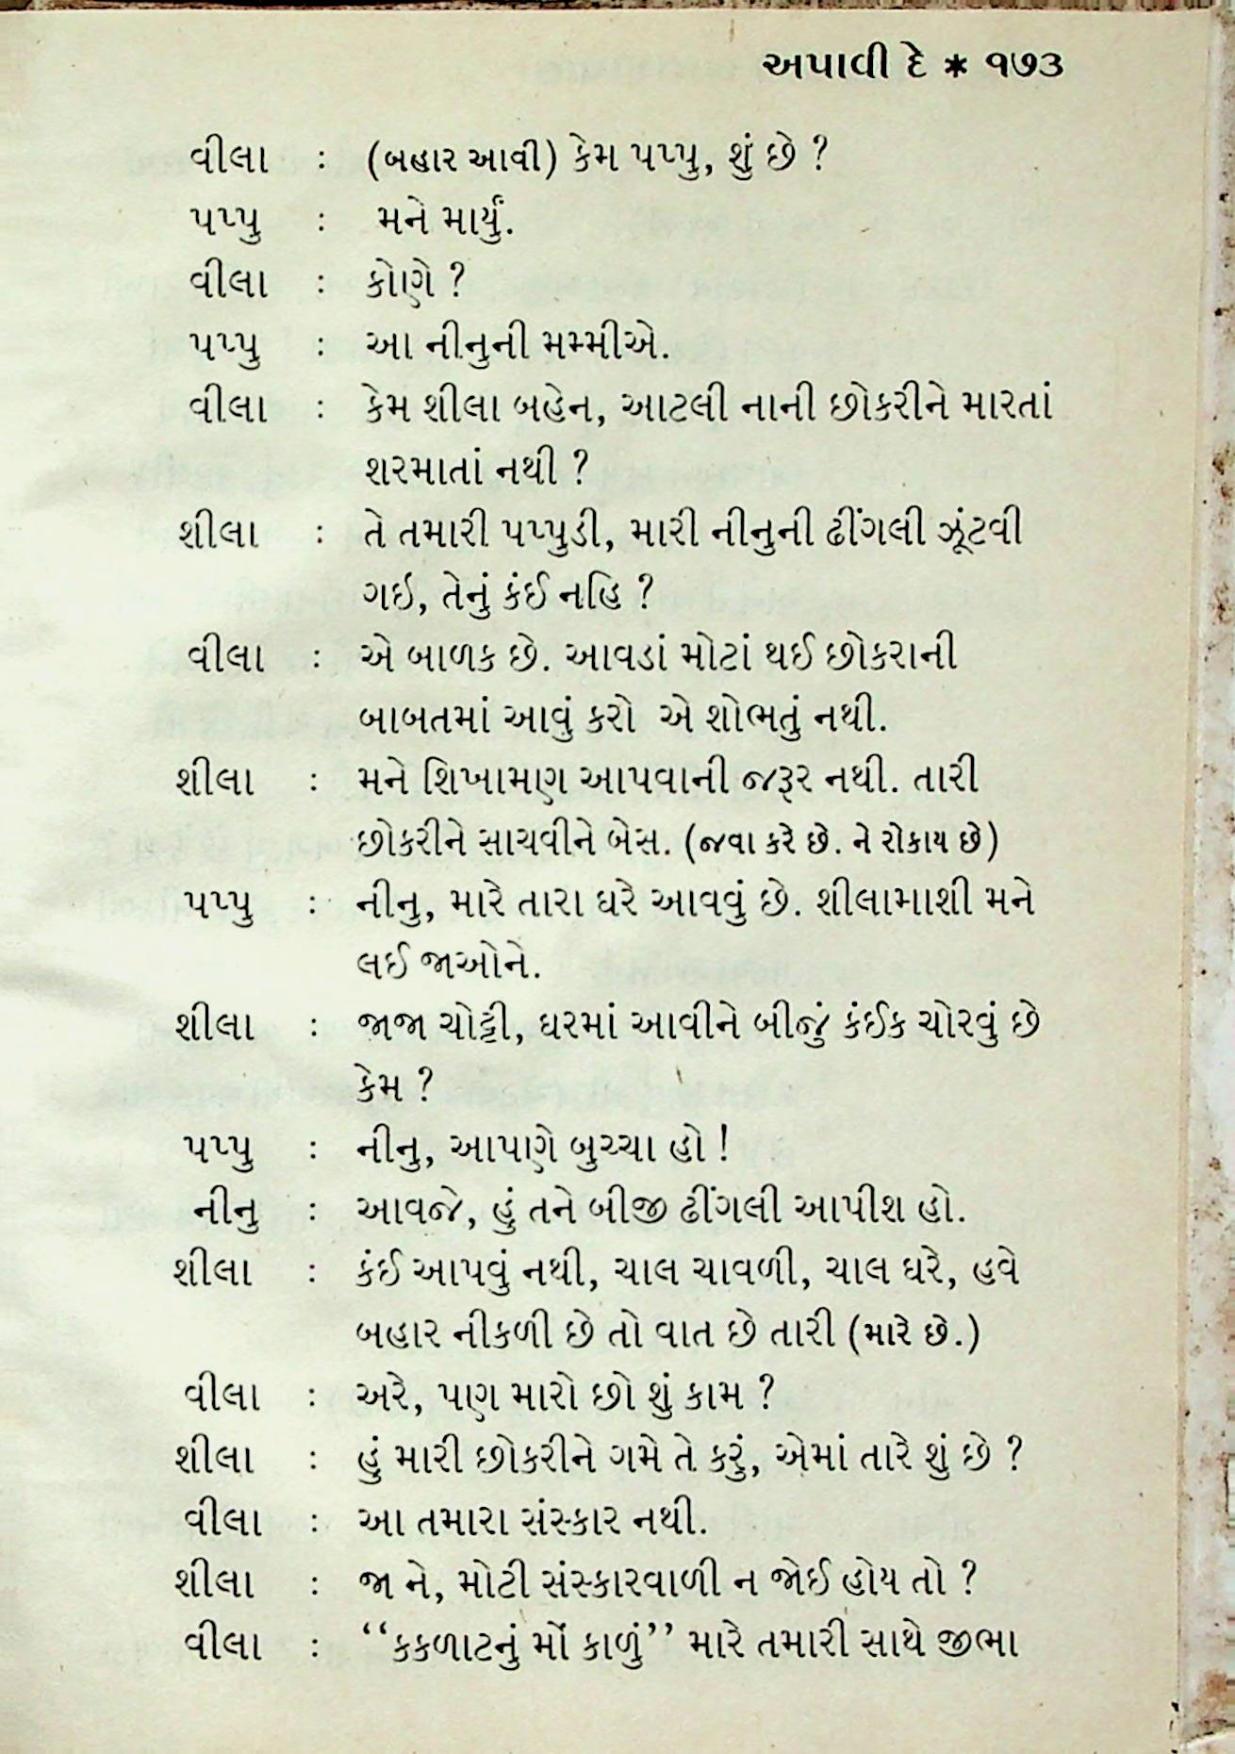 અપાવી દે * ૧૭૩
વીલા : (બહાર આવી) કેમ પપ્પુ, શું છે ?
પપ્પુ : મને માર્યું.
વીલા : કોણે ?
પપ્પુ : આ નીનુની મમ્મીએ.
વીલા : કેમ શીલા બહેન, આટલી નાની છોકરીને મારતાં
શરમાતાં નથી ?
શીલા : તે તમારી પપ્પુડી, મારી નીનુની ઢીંગલી ઝૂંટવી
ગઇ, તેનું કંઈ નહિ ?
વીલા : એ બાળક છે. આવડાં મોટાં થઈ છોકરાની
બાબતમાં આવું કરો એ શોભતું નથી.
શીલા : મને શિખામણ આપવાની જરૂર નથી. તારી
છોકરીને સાચવીને બેસ. (જવા કરે છે. ને રોકાય છે)
પપ્પુ : નીનુ, મારે તારા ઘરે આવવું છે. શીલામાશી મને
લઈ જાઓને.
શીલા : જાજા ચોટ્ટી, ઘરમાં આવીને બીજું કંઈક ચોરવું છે
કેમ ?
પપ્પુ : નીનુ, આપણે બુચ્ચા હો !
નીનુ : આવજે, હું તને બીજી ઢીંગલી આપીશ હો.
શીલા : કંઈ આપવું નથી, ચાલ ચાવળી, ચાલ ઘરે, હવે
બહાર નીકળી છે તો વાત છે તારી (મારે છે.)
વીલા : અરે, પણ મારો છો શું કામ ?
શીલા : હું મારી છોકરીને ગમે તે કરું, એમાં તારે શું છે ?
વીલા : આ તમારા સંસ્કાર નથી.
શીલા : જા ને, મોટી સંસ્કારવાળી ન જોઈ હોય તો ?
વીલા : ‘‘કકળાટનું મોં કાળું’’ મારે તમારી સાથે જીભા